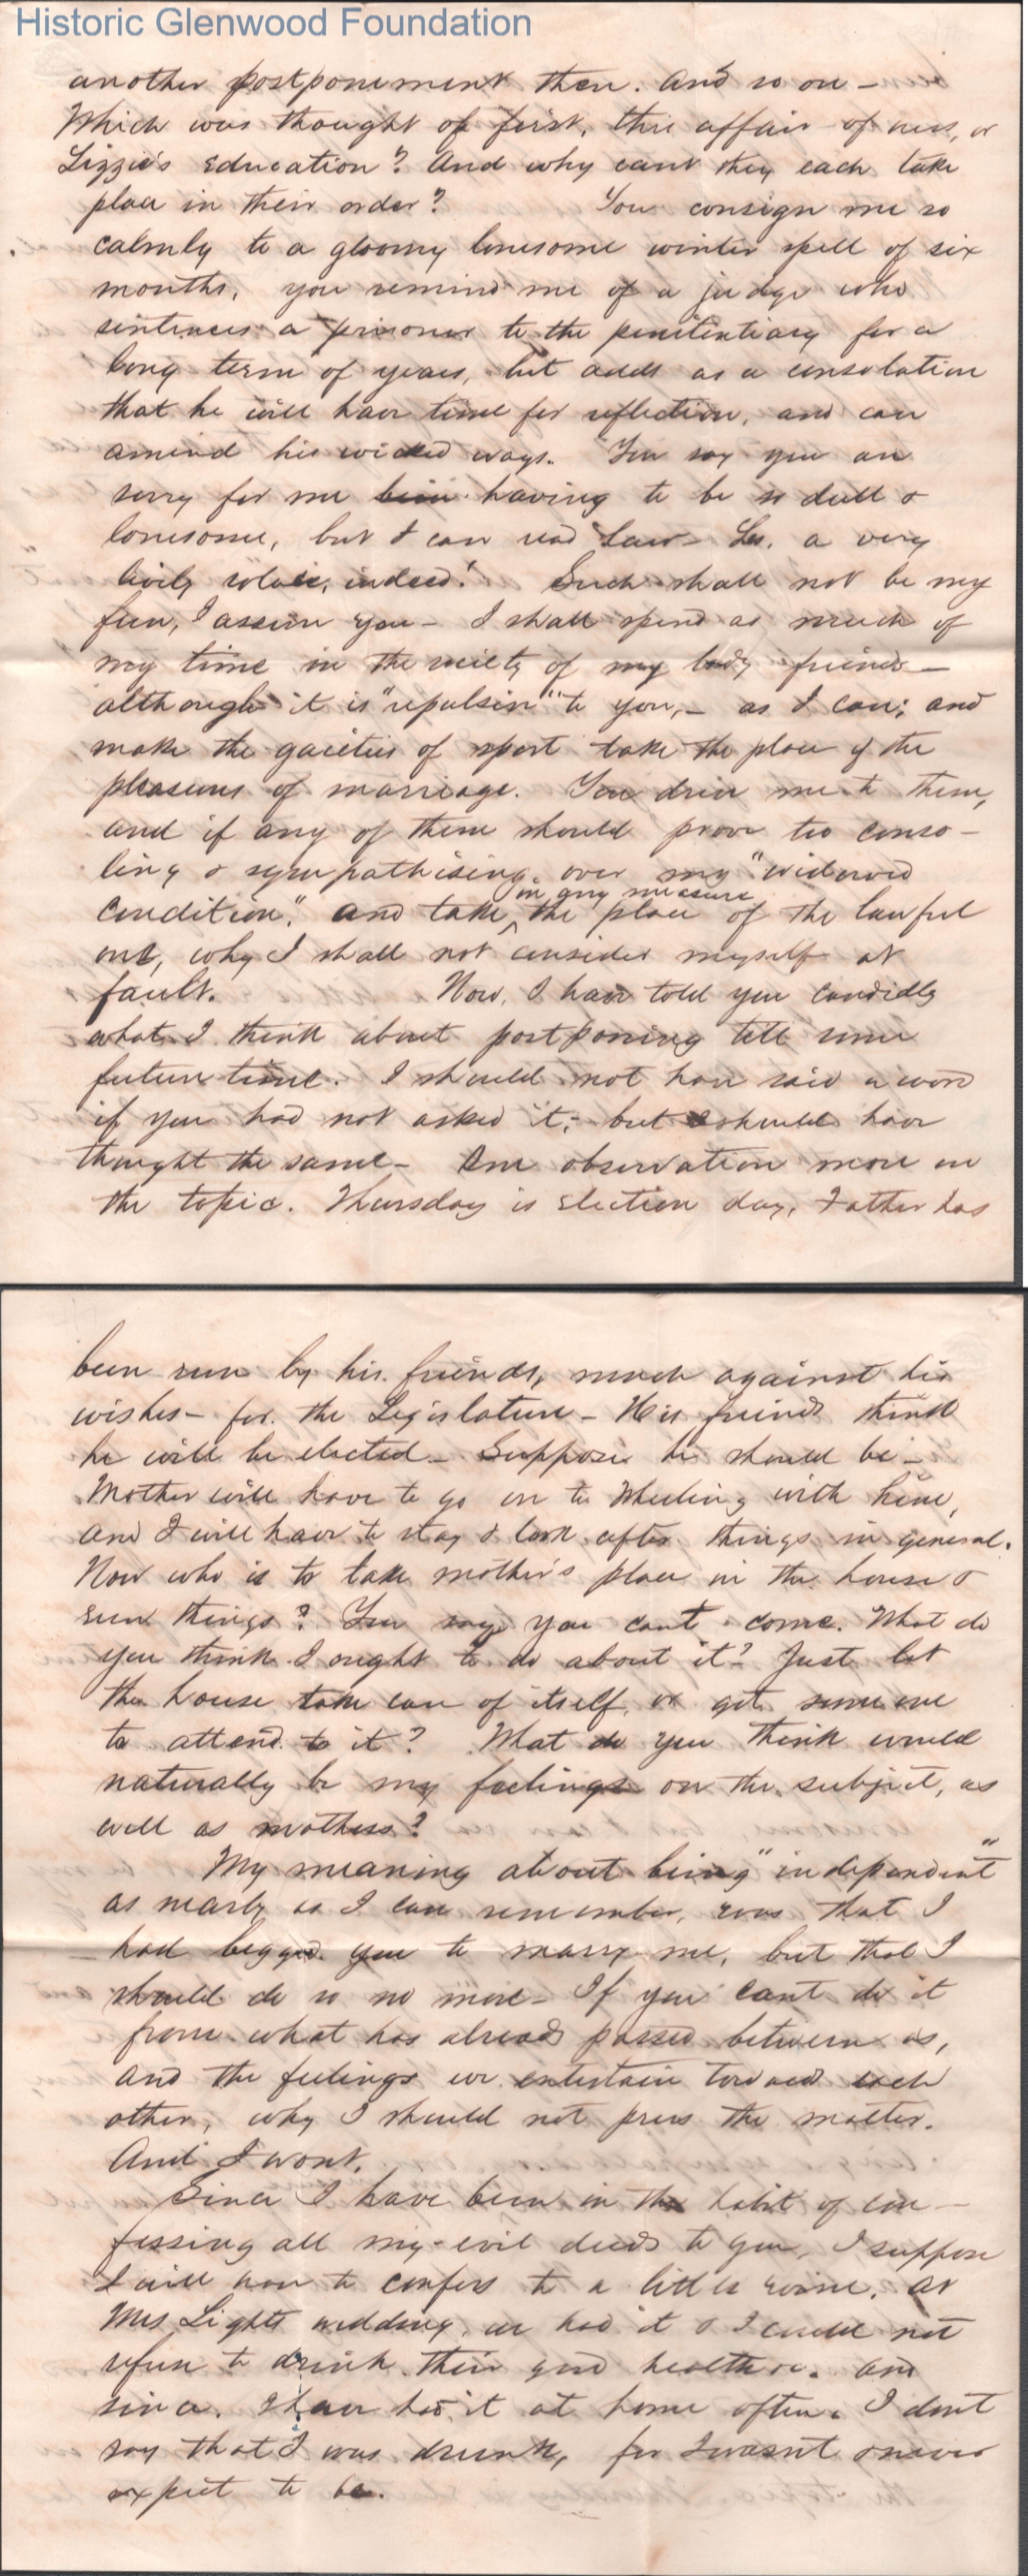 Historic Glenwood Foundation
another postponement then. And so on –
Which was thought of first, this affair of ours, or
Lizzie's Education? And why cant they each take
place in their order? You consign me so
calmly to a gloomy lonesome winter spell of six
months, you remind me of a judge who
sentences a prisoner to the penitentiary for a
long term of years, but adds as a consolation
that he will have time for reflection, and can
amend his wicked ways. You say you are
sorry for me having to be so dull &
lonesome, but I can read Law – a very
lively solace, indeed! Such shall not be my
fun, I assure you – I shall spend as much of
my time in the society of my lady friends –
although it is "repulsive" to you, – as I can; and
make the gaieties of sport take the place of the
pleasures of marriage. You drive me to them,
and if any of them should prove too conso–
ling & sympathising over my "widowed
in any measure
condition", and take ^ the place of the lawful
one, why I shall not consider myself at
fault. Now, I have told you candidly
what I think about postponing till some
future time. I should not have said a word
if you had not asked it; but I should have
thought the same – One observation more on
the topic. Thursday is Election day, Father has
been run by his friends, much against his
wishes – for the Legislature – His friends think
he will be elected – Suppose he should be –
Mother will have to go on to Wheeling with him,
and I will have to stay & look after things in general.
Now who is to take mother's place in the house &
run things? You say you cant come. What do
you think I ought to do about it? Just let
the house take care of itself, or get some one
to attend to it? What do you think would
naturally be my feelings on the subject, as
well as mothers?
My meaning about being "independent"
as nearly as I can remember, was that I
had begged you to marry me, but that I
should do so no more – If you cant do it
from what has already passed between us,
and the feelings we entertain toward each
other, why I should not press the matter.
And I wont.
Since I have been in the habit of con–
fessing all my evil deeds to you, I suppose
I will have to confess to a little wine. At
Mrs Lights wedding, we had it & I could not
refuse to drink their good health &c. and
since. I have had it at home often. I dont
say that I was drunk, for I wasnt & never
expect to be.